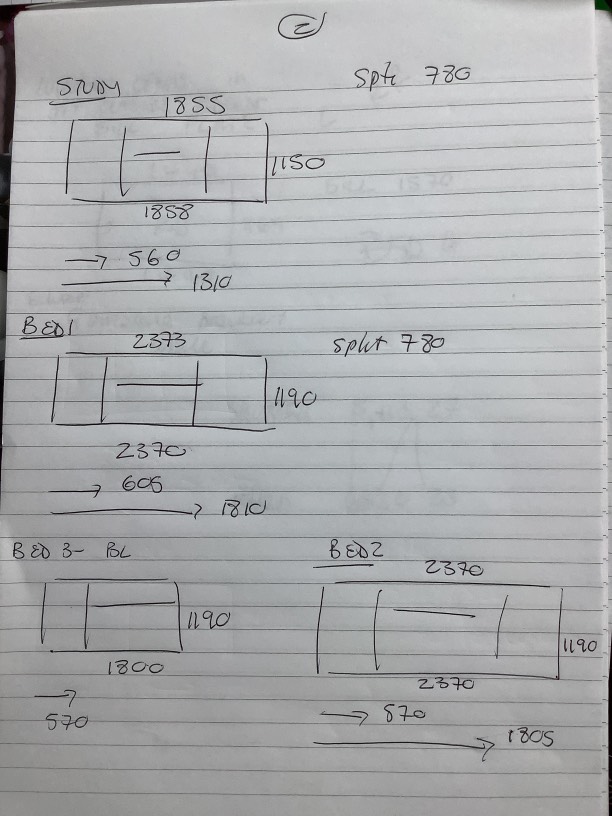 2
STUDY
Split 780
1855
1150
1858
560
1310
BED1
2373
Split 780
1190
2370
605
1810
BED 3- BL
1190
1800
570
BED2
2370
1190
2370
570
1805